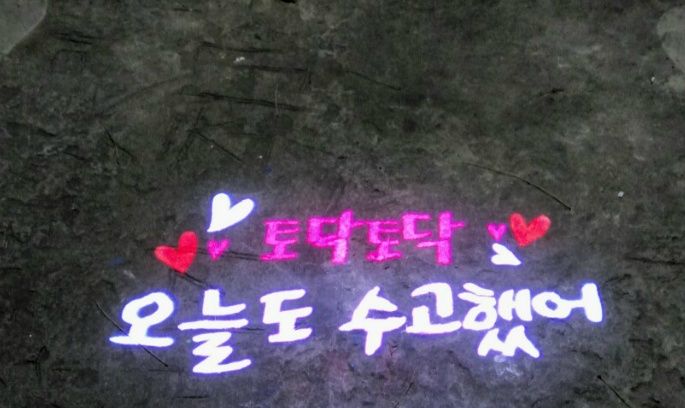 토닥토닥
오늘도 수고했어